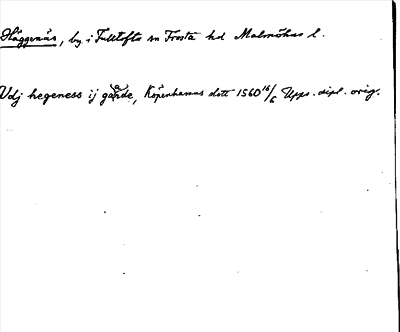 Häggenäs, by i Fulltofta sn Frosta hd Malmöhus l.
Udj hegeness ij garde, Köpenhamns dott 1560 16/6 Upps. dipl. orig.